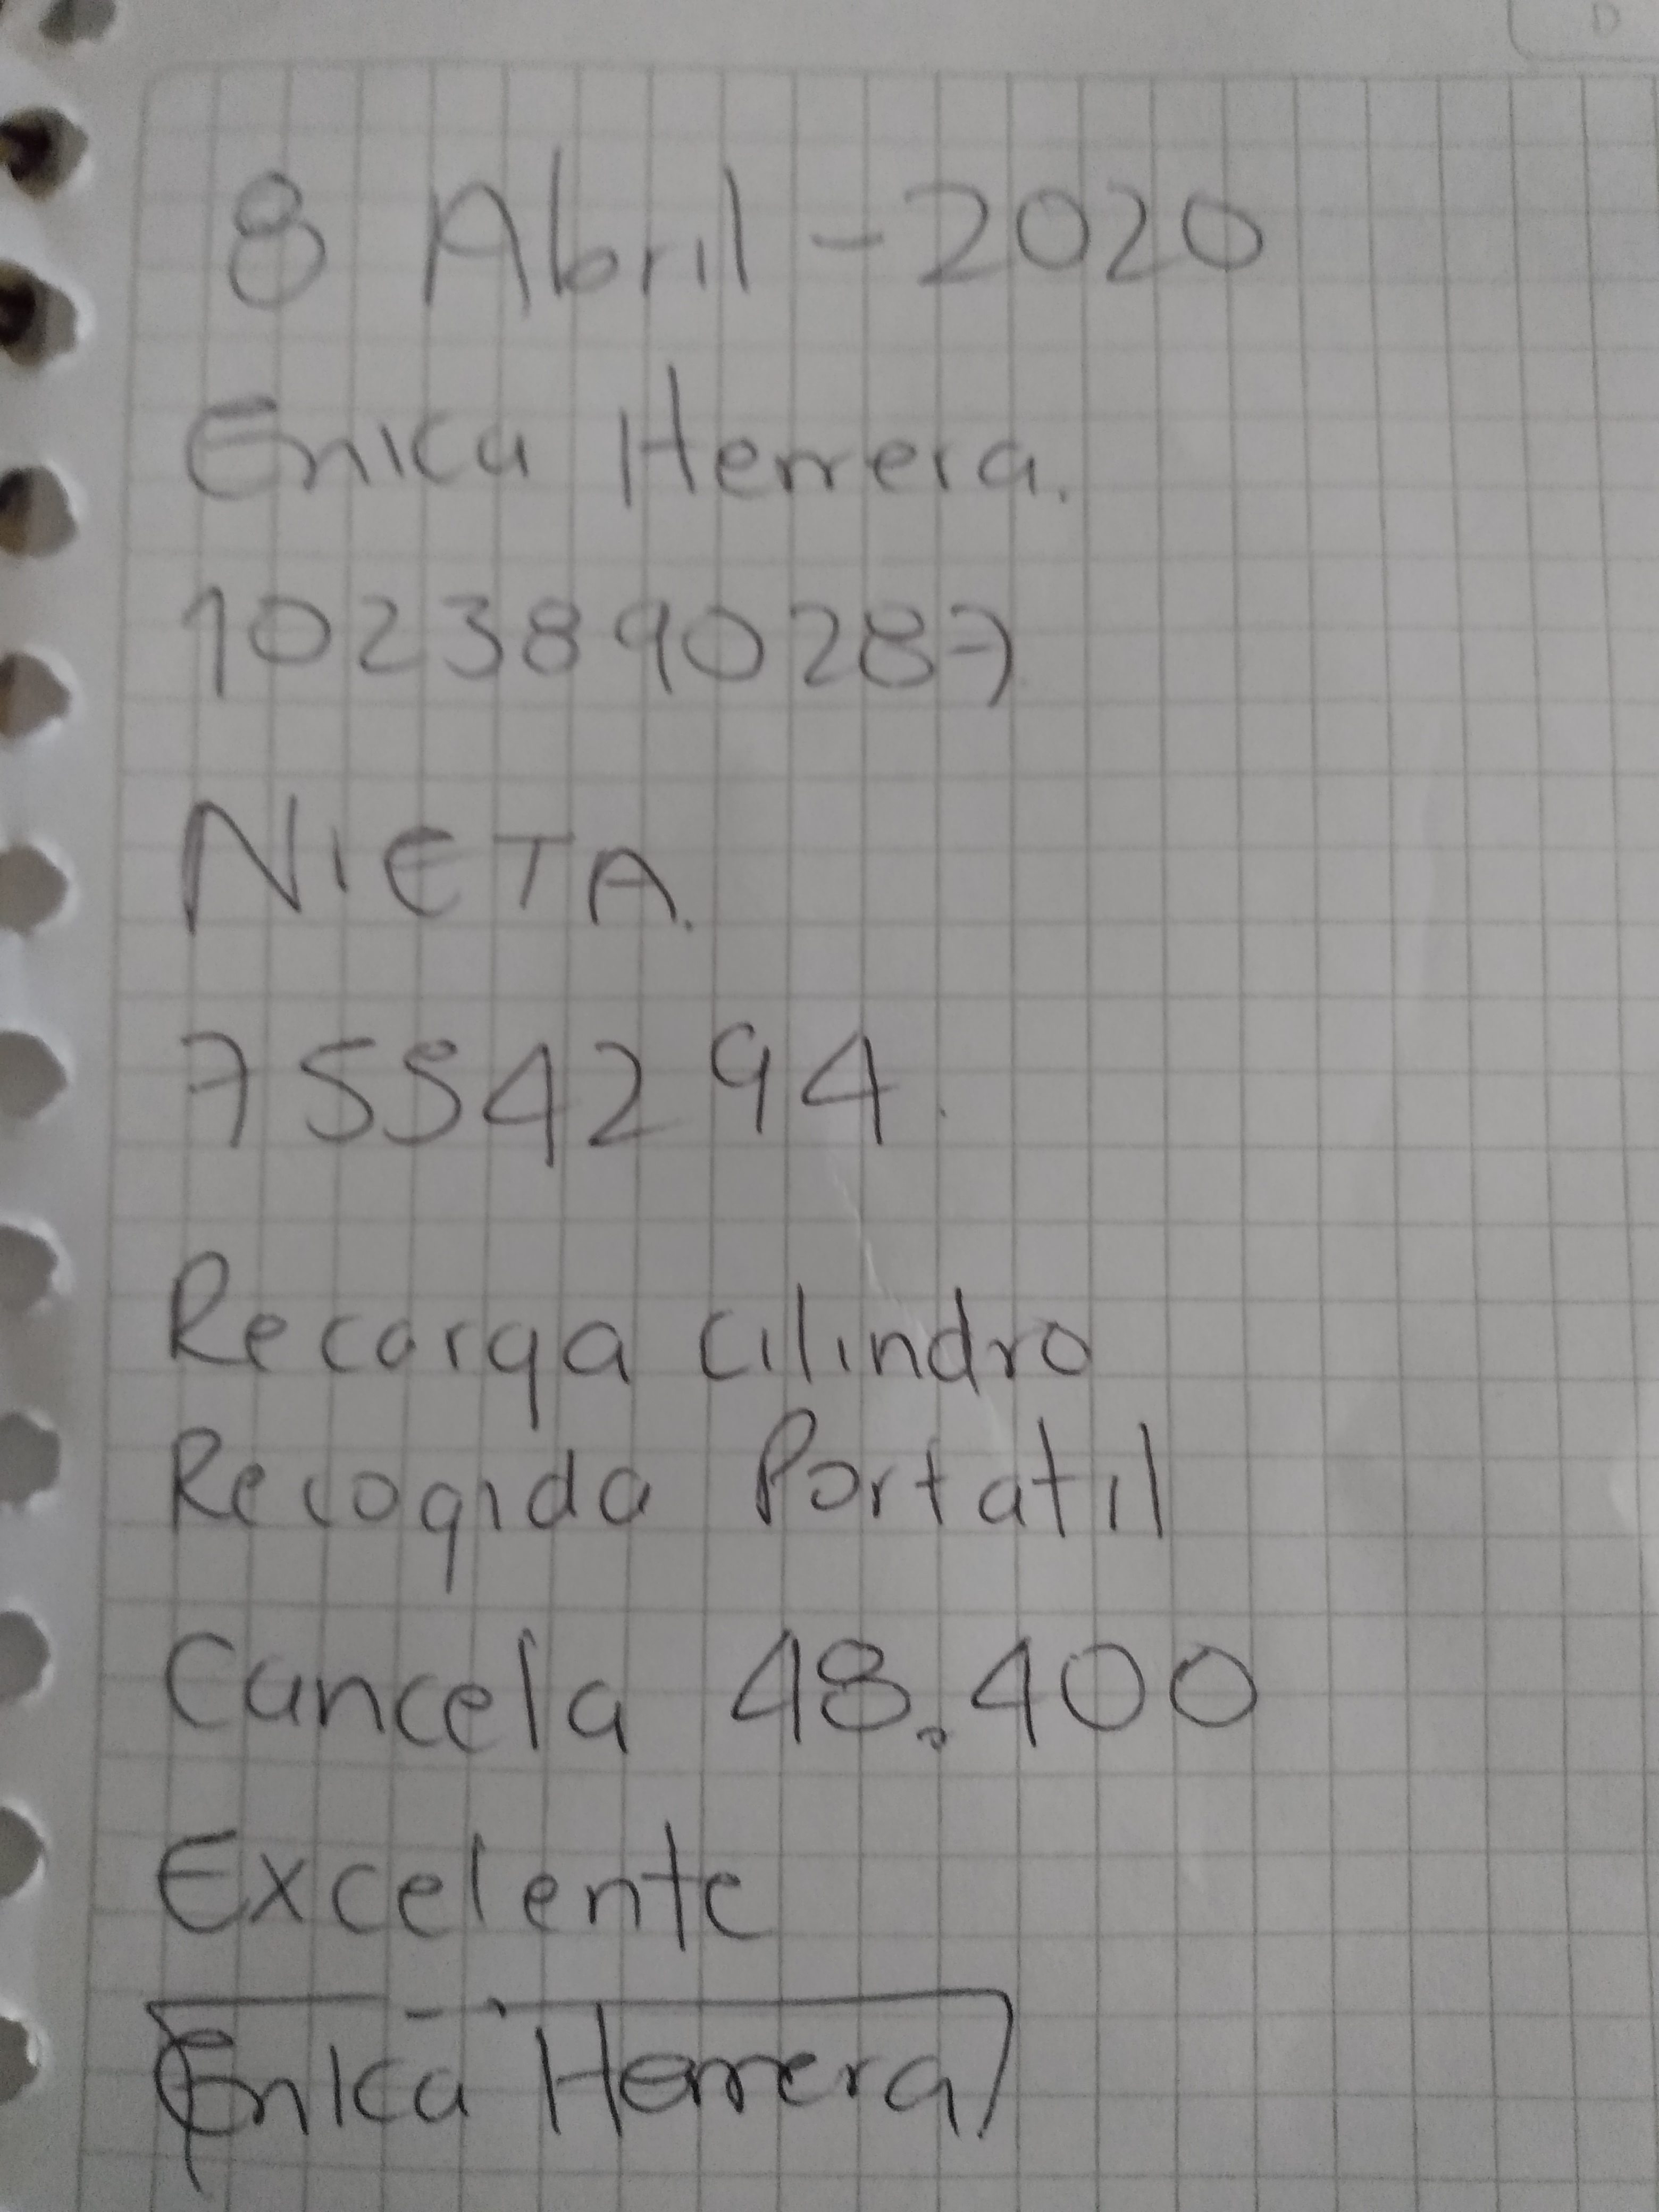 8 Abril - 2020
Erica Herrera.
1023890287
NIETA.
7554294.
Recarga cilindro
Recogida Portatil
Cancela 48.400
Excelente
Erica Herrera